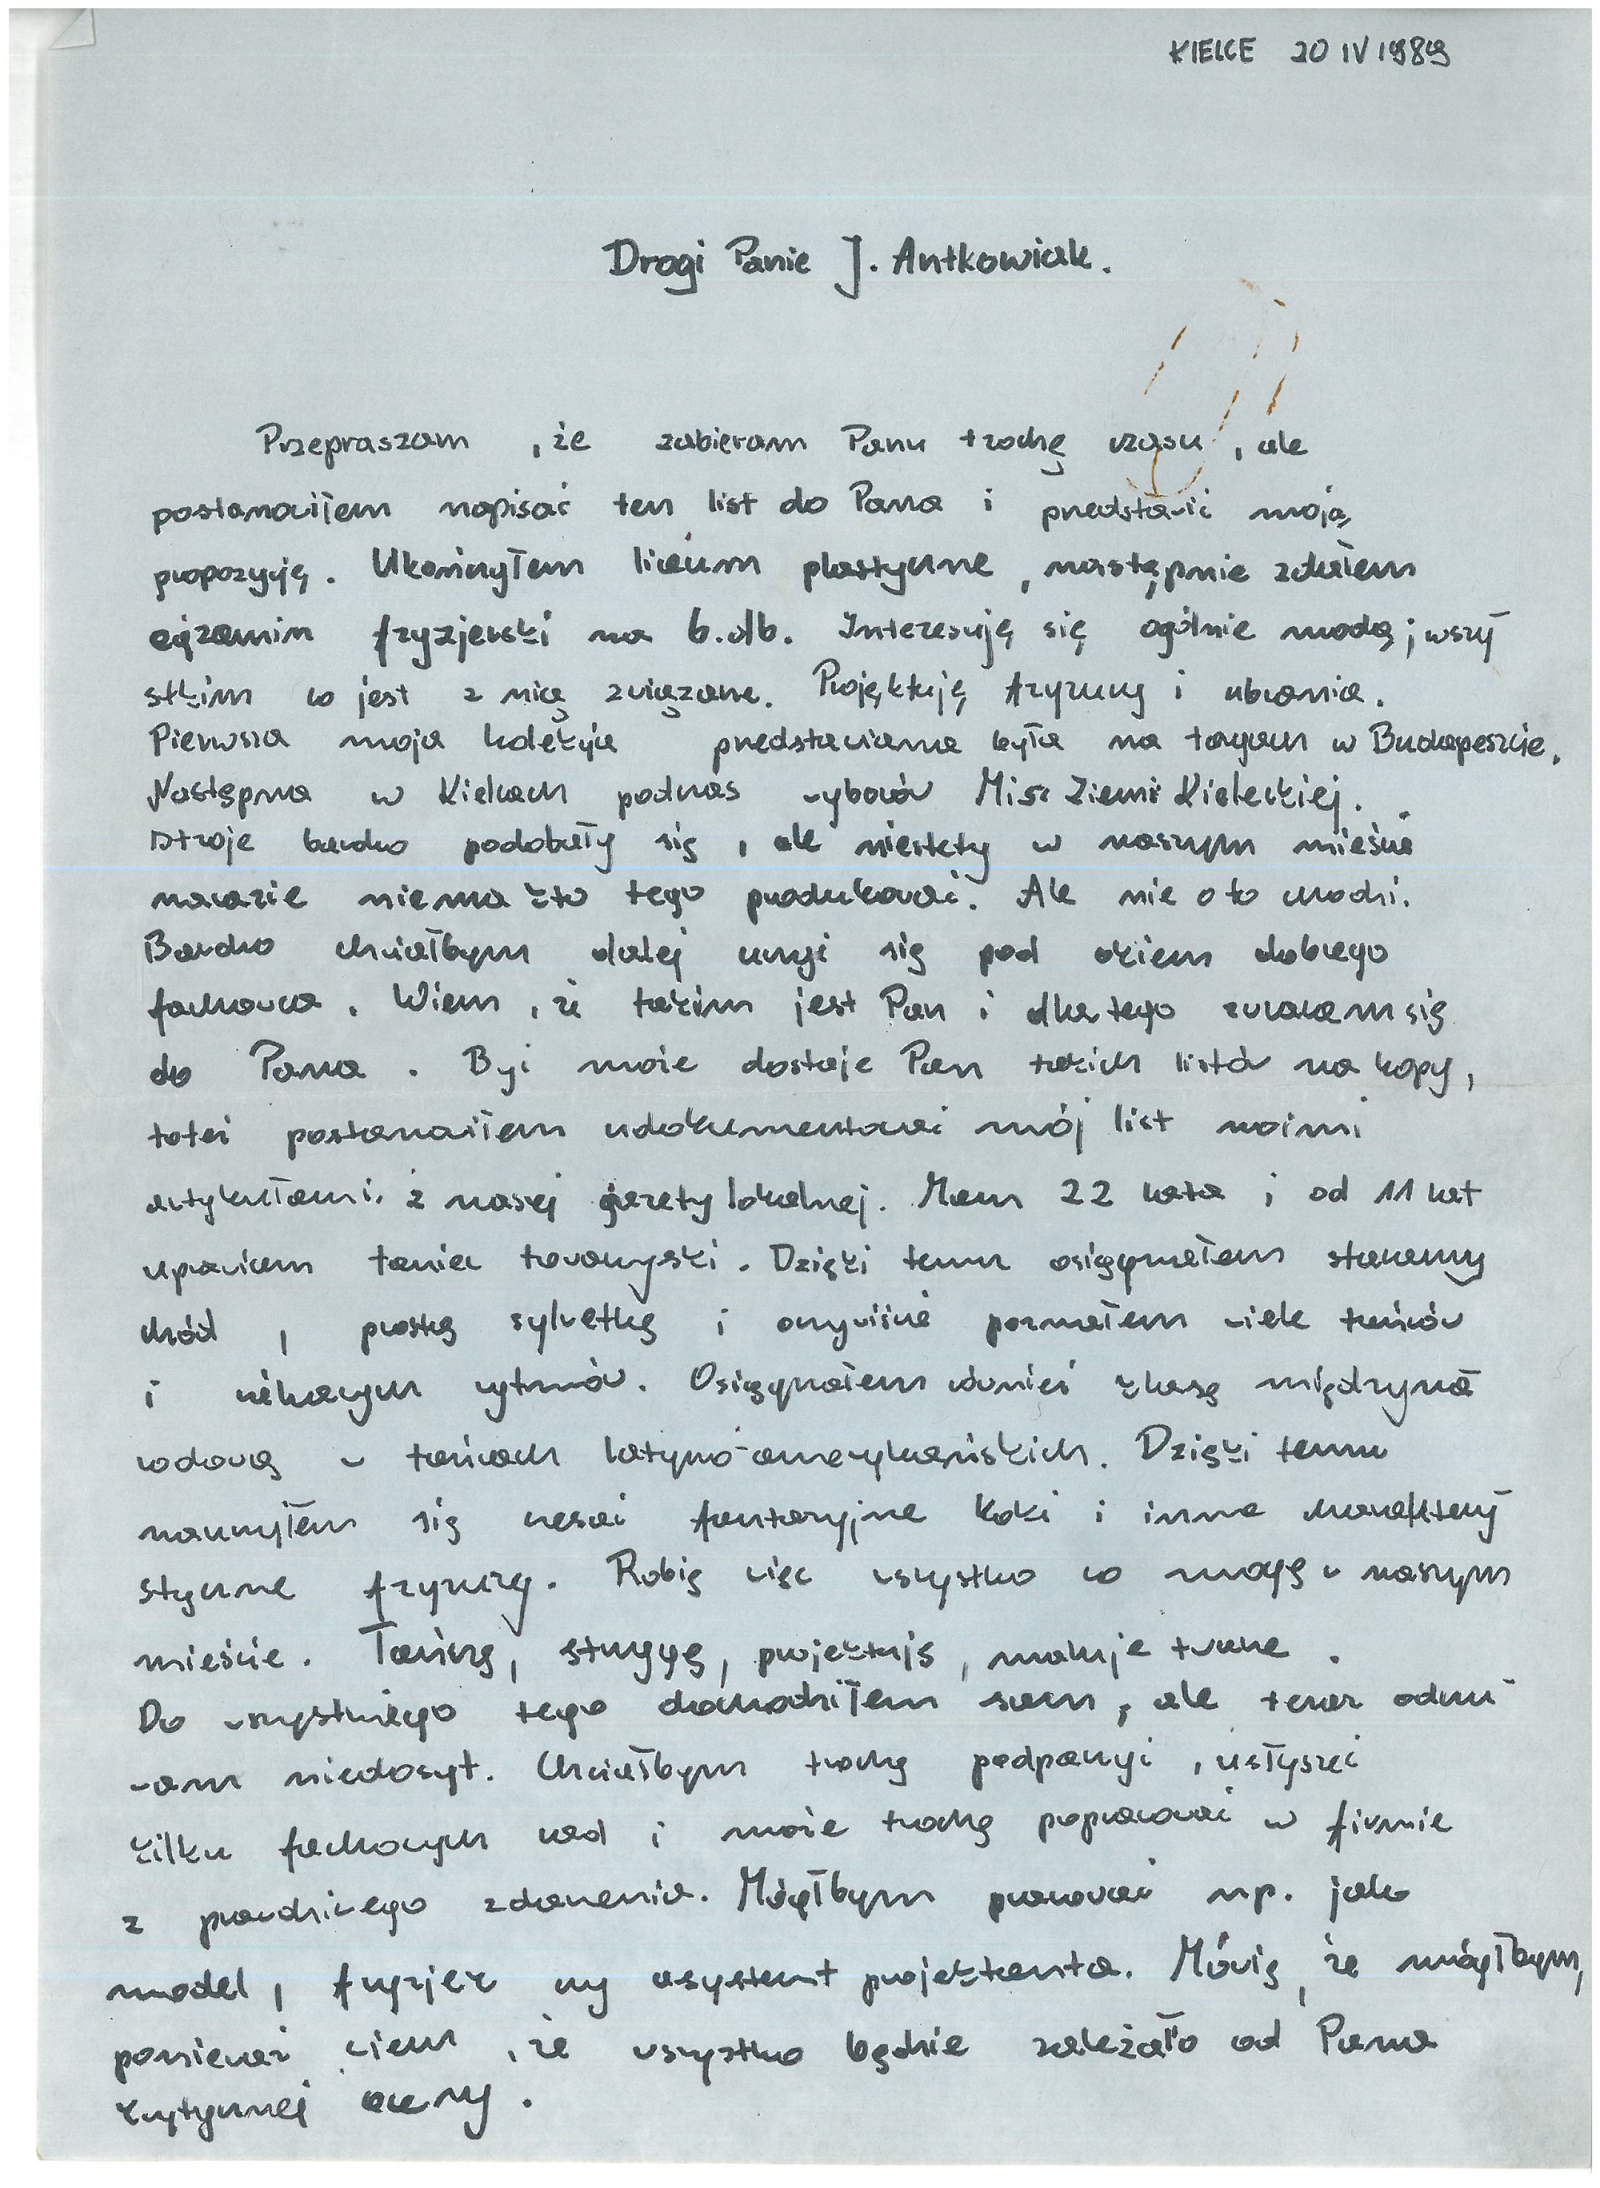 KIELCE 20 IV 1989
Drogi Panie J. Antkowiak.
Przepraszam, że zabieram Panu trochę czasu, ale
postanowiłem napisać ten list do Pana i przedstawić moją
propozycję. Ukończyłem liceum plastyczne, następnie zdałem
egzamin fryzjerski na b.db. Interesuję się ogólnie modą i wszy
stkim co jest z nią związane. Projęktuję fryzury i ubrania.
Pierwsza moja kolekcja przedstawiana była na targach w Budapeszcie.
Następna w Kielcach podczas wyborów Miss Ziemi Kieleckiej.
Stroje bardzo podobały się, ale niestety w naszym mieście
narazie niema kto tego produkować. Ale nie o to chodzi.
Bardzo chciałbym dalej uczyć się pod okiem dobrego
fachowca. Wiem, że takim jest Pan i dlatego zwracam się
do Pana. Być może dostaje Pan takich listów na kopy,
toteż postanowiłem udokumentować mój list moimi
artykułami z naszej gazety lokalnej. Mam 22 lata i od 11 lat
uprawiam taniec towarzyski. Dzięki temu osiągnąłem staranny
chód, prostą sylwetkę i oczywiście poznałem wiele tańców
i ciekawych rytmów. Osiągnąłem również klasę międzyna
rodową w tańcach latyno-amerykańskich. Dzięki temu
nauczyłem się czesać fantazyjne koki i inne charaktery
styczne fryzury. Robię więc wszystko co mogę w naszym
mieście. Tańczę, strzygę, projektuję, maluję twarze.
Do wszystkiego tego dochodziłem sam, ale teraz odczu-
wam niedosyt. Chciałbym trochę podpatrzyć, usłyszeć
kilku fachowych rad i może trochę popracować w firmie
z prawdziwego zdarzenia. Mógłbym pracować np. jako
model, fryzjer czy asystent projektanta. Mówię, że mógłbym,
ponieważ wiem, że wszystko będzie zależało od Pana
krytycznej oceny.